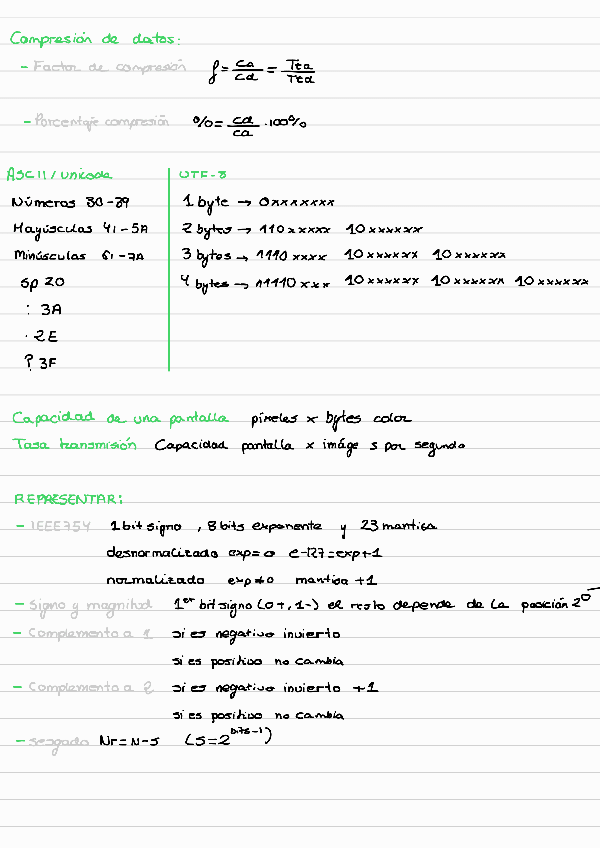 Compresión de datos:
- Factor de compresión f = Ca/Cd = Tta/Ttd
- Porcentaje compresión % = Cd/Ca · 100%
ASCII/Unicode
Números 30-39
Mayúsculas 41-5A
Minúsculas 61-7A
sp 20
: 3A
. 2E
? 3F
UTF-8
1 byte → 0xxxxxxx
2 bytes → 110xxxxx 10xxxxxx
3 bytes → 1110xxxx 10xxxxxx 10xxxxxx
4 bytes → 11110xxx 10xxxxxx 10xxxxxx 10xxxxxx
Capacidad de una pantalla píxeles x bytes color
Tasa transmisión Capacidad pantalla x imáge s por segundo
REPRESENTAR:
- IEEE754 1 bit signo, 8 bits exponente y 23 mantisa
desnormalizado exp=0 e-127=exp+1
normalizado exp≠0 mantisa +1
- Signo y magnitud 1er bit signo (0+, 1-) el resto depende de la posición 2^0
- Complemento a 1 si es negativo invierto
si es positivo no cambia
- Complemento a 2 si es negativo invierto +1
si es positivo no cambia
- sesgado Nr=N-S (S=2^bits-1)